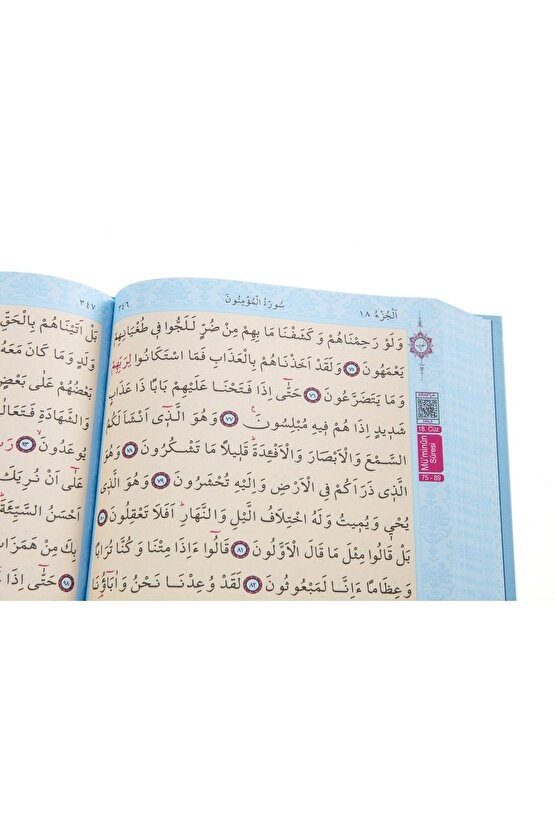 اَلْجُزْءُ ١٨
سُورَةُ الْمُؤْمِنُونَ
٣٤٦
وَلَوْ رَحِمْنَاهُمْ وَكَشَفْنَا مَا بِهِمْ مِنْ ضُرٍّ لَلَجُّوا فٖي طُغْيَانِهِمْ
يَعْمَهُونَ ٧٥ وَلَقَدْ اَخَذْنَاهُمْ بِالْعَذَابِ فَمَا اسْتَكَانُوا لِرَبِّهِمْ
وَمَا يَتَضَرَّعُونَ ٧٦ حَتّٰٓى اِذَا فَتَحْنَا عَلَيْهِمْ بَابًا ذَا عَذَابٍ
شَدٖيدٍ اِذَا هُمْ فٖيهِ مُبْلِسُونَ ٧٧ وَهُوَ الَّذٖٓي اَنْشَاَ لَكُمُ
السَّمْعَ وَالْاَبْصَارَ وَالْاَفْـِٔدَةَ قَلٖيلًا مَا تَشْكُرُونَ ٧٨ وَهُوَ
الَّذٖي ذَرَاَكُمْ فِي الْاَرْضِ وَاِلَيْهِ تُحْشَرُونَ ٧٩ وَهُوَ الَّذٖي
يُحْيٖ وَيُمٖيتُ وَلَهُ اخْتِلَافُ الَّيْلِ وَالنَّهَارِ اَفَلَا تَعْقِلُونَ ٨٠
بَلْ قَالُوا مِثْلَ مَا قَالَ الْاَوَّلُونَ ٨١ قَالُٓوا ءَاِذَا مِتْنَا وَكُنَّا تُرَابًا
وَعِظَامًا ءَاِنَّا لَمَبْعُوثُونَ ٨٢ لَقَدْ وُعِدْنَا نَحْنُ وَاٰبَٓاؤُ۬نَا
18. Cüz
Mü'minûn
Sûresi
75 - 89
٣٤٧
بَلْ اَتَيْنَاهُمْ بِالْحَقِّ
وَلَدٍ وَمَا كَانَ مَعَهُ
بَعْضُهُمْ عَلٰى بَعْضٍ
وَالشَّهَادَةِ فَتَعَالٰى
يُوعَدُونَ ٩٣ رَبِّ
عَلٰٓى اَنْ نُرِيَكَ
اَحْسَنُ السَّيِّئَةَ
بِكَ مِنْ هَمَزَاتِ
٩٨ حَتّٰٓى اِذَا